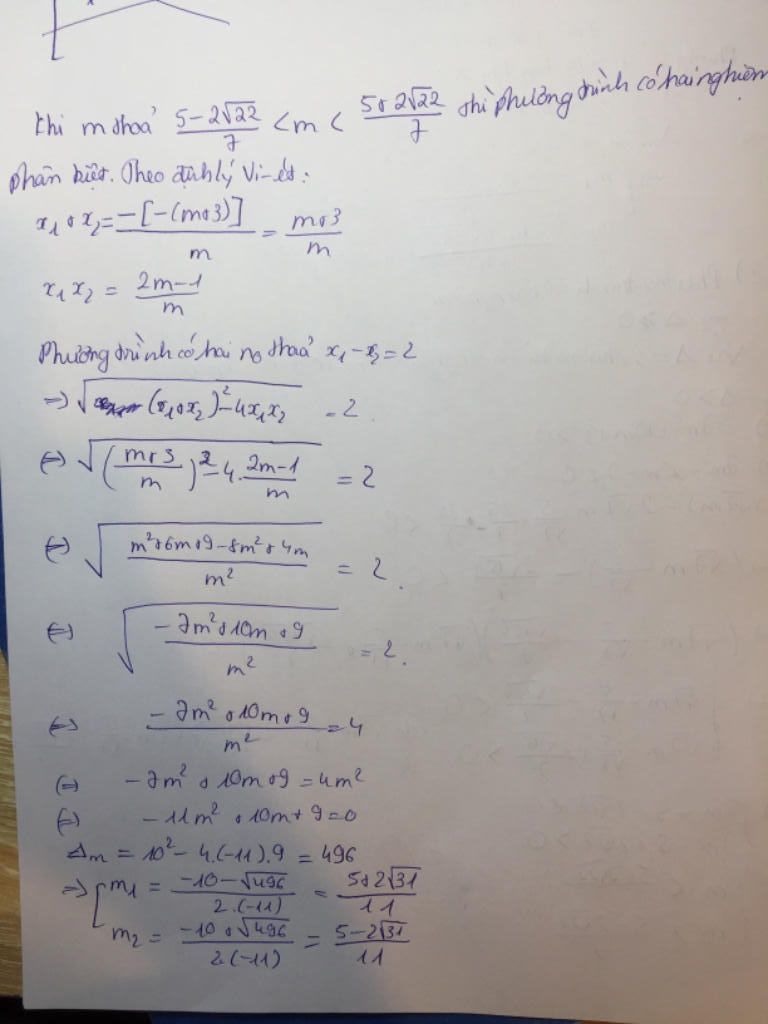 Khi m thoả \frac{5-2\sqrt{22}}{7} < m < \frac{5+2\sqrt{22}}{7} thì phương trình có hai nghiệm
phân biệt. Theo định lý Vi-ét:
x_1 + x_2 = \frac{-[-(m+3)]}{m} = \frac{m+3}{m}
x_1 x_2 = \frac{2m-1}{m}
Phương trình có hai no thoả x_1 - x_2 = 2
=> \sqrt{(x_1+x_2)^2 - 4x_1x_2} = 2
(=) \sqrt{(\frac{m+3}{m})^2 - 4.\frac{2m-1}{m}} = 2
(=) \sqrt{\frac{m^2+6m+9-8m^2+4m}{m^2}} = 2.
(=) \sqrt{\frac{-7m^2+10m+9}{m^2}} = 2.
(=) \frac{-7m^2+10m+9}{m^2} = 4
(=) -7m^2+10m+9 = 4m^2
(=) -11m^2+10m+9=0
Δ_m = 10^2 - 4.(-11).9 = 496
=> [ m_1 = \frac{-10-\sqrt{496}}{2.(-11)} = \frac{5+2\sqrt{31}}{11}
m_2 = \frac{-10+\sqrt{496}}{2.(-11)} = \frac{5-2\sqrt{31}}{11}